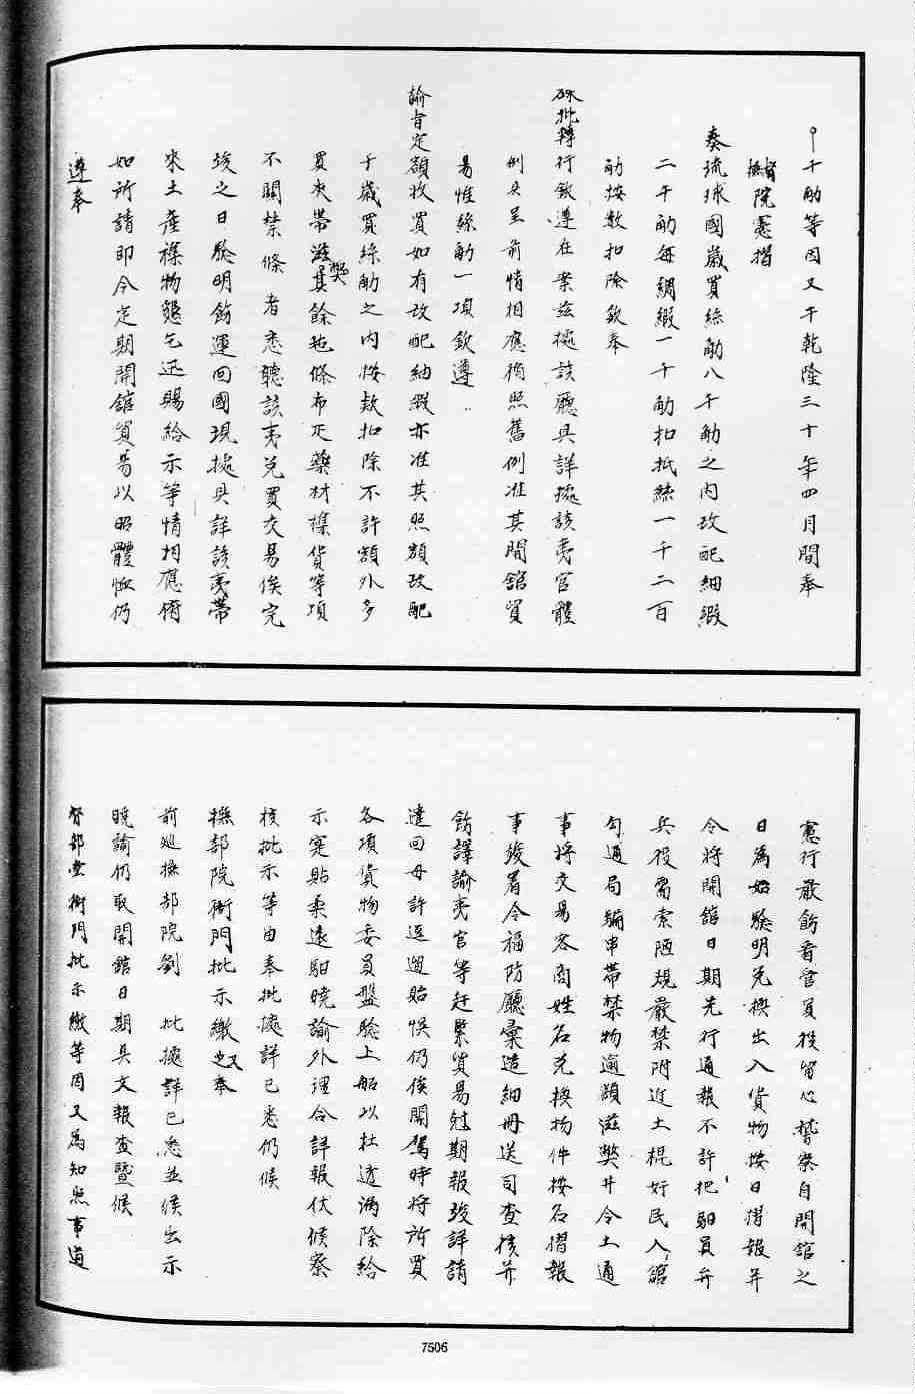 千觔等因又于乾隆三十年四月間奉
督撫院憲摺
奏琉球國歲買絲觔八千觔之內改配紬緞
二千觔每綢緞一千觔扣抵絲一千二百
觔按數扣除欽奉
硃批轉行欽遵在案兹據該廳具詳據該夷官體
例央呈前情相應循照舊例准其開舘貿
易惟絲觔一項欽遵
諭旨定額收買如有改配紬緞亦准其照額改配
于歲買絲觔之内按款扣除不許額外多
買夾帶滋弊其餘毡條布疋藥材襍貨等項
不關禁條者悉聽該夷兌買交易俟完
竣之日驗明飭運回國現據具詳該夷帶
來土産襍物懇乞迅賜給示等情相應俯
如所請即令定期開舘貿易以昭體恤仍
遵奉
憲行嚴飭看管員役留心稽察自開舘之
日為始驗明兌換出入貨物按日摺報并
令將開舘日期先行通報不許把駐員弁
兵役需索陋規嚴禁附近土棍奸民入舘
勾通局騙串帶禁物逾額滋弊并令土通
事將交易客商姓名兌換物件按名摺報
事竣着令福防廳彙造細冊送司查核并
飭譯諭夷官等赶緊貿易尅期報竣詳請
遣回毋許逗遛貽悞仍俟開駕時將所買
各項貨物委員盤驗上船以杜透漏除給
示寔貼柔遠驛曉諭外理合詳報伏候察
核批示等由奉批據詳已悉仍候
撫部院衙門批示繳又奉
前廵撫部院劉 批據詳已悉並候出示
曉諭仍取開舘日期具文報查暨候
督部堂衙門批示繳等因又為知照事道
7506